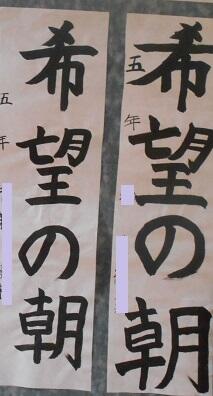 希望の朝
五年
希望の朝
五年